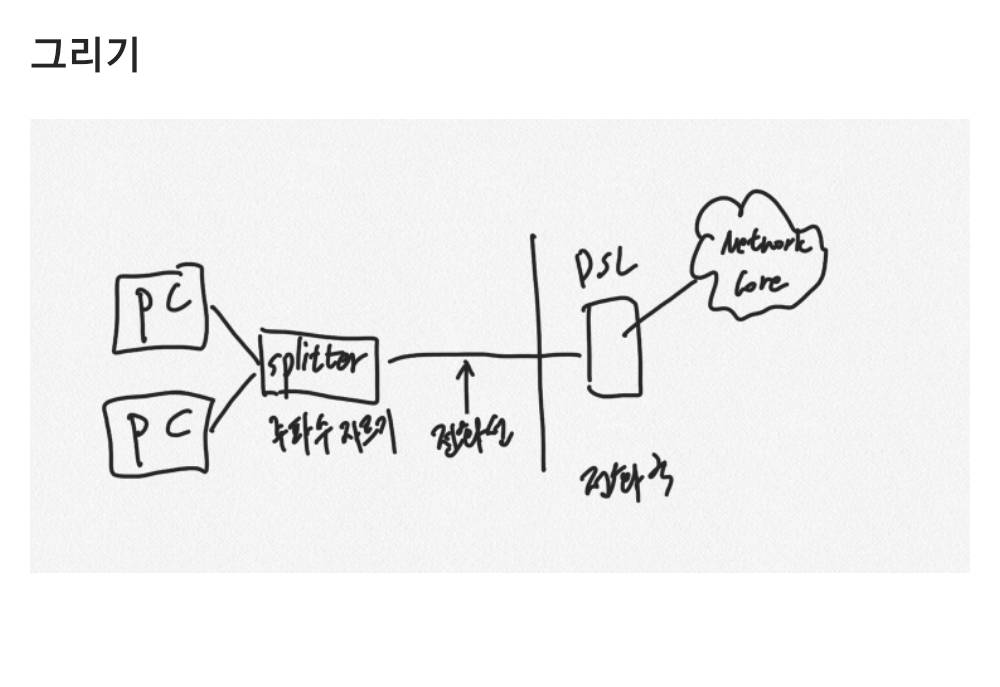 그리기
PC
PC
splitter
주파수 자르기
전화선
DSL
전화국
Network
Core